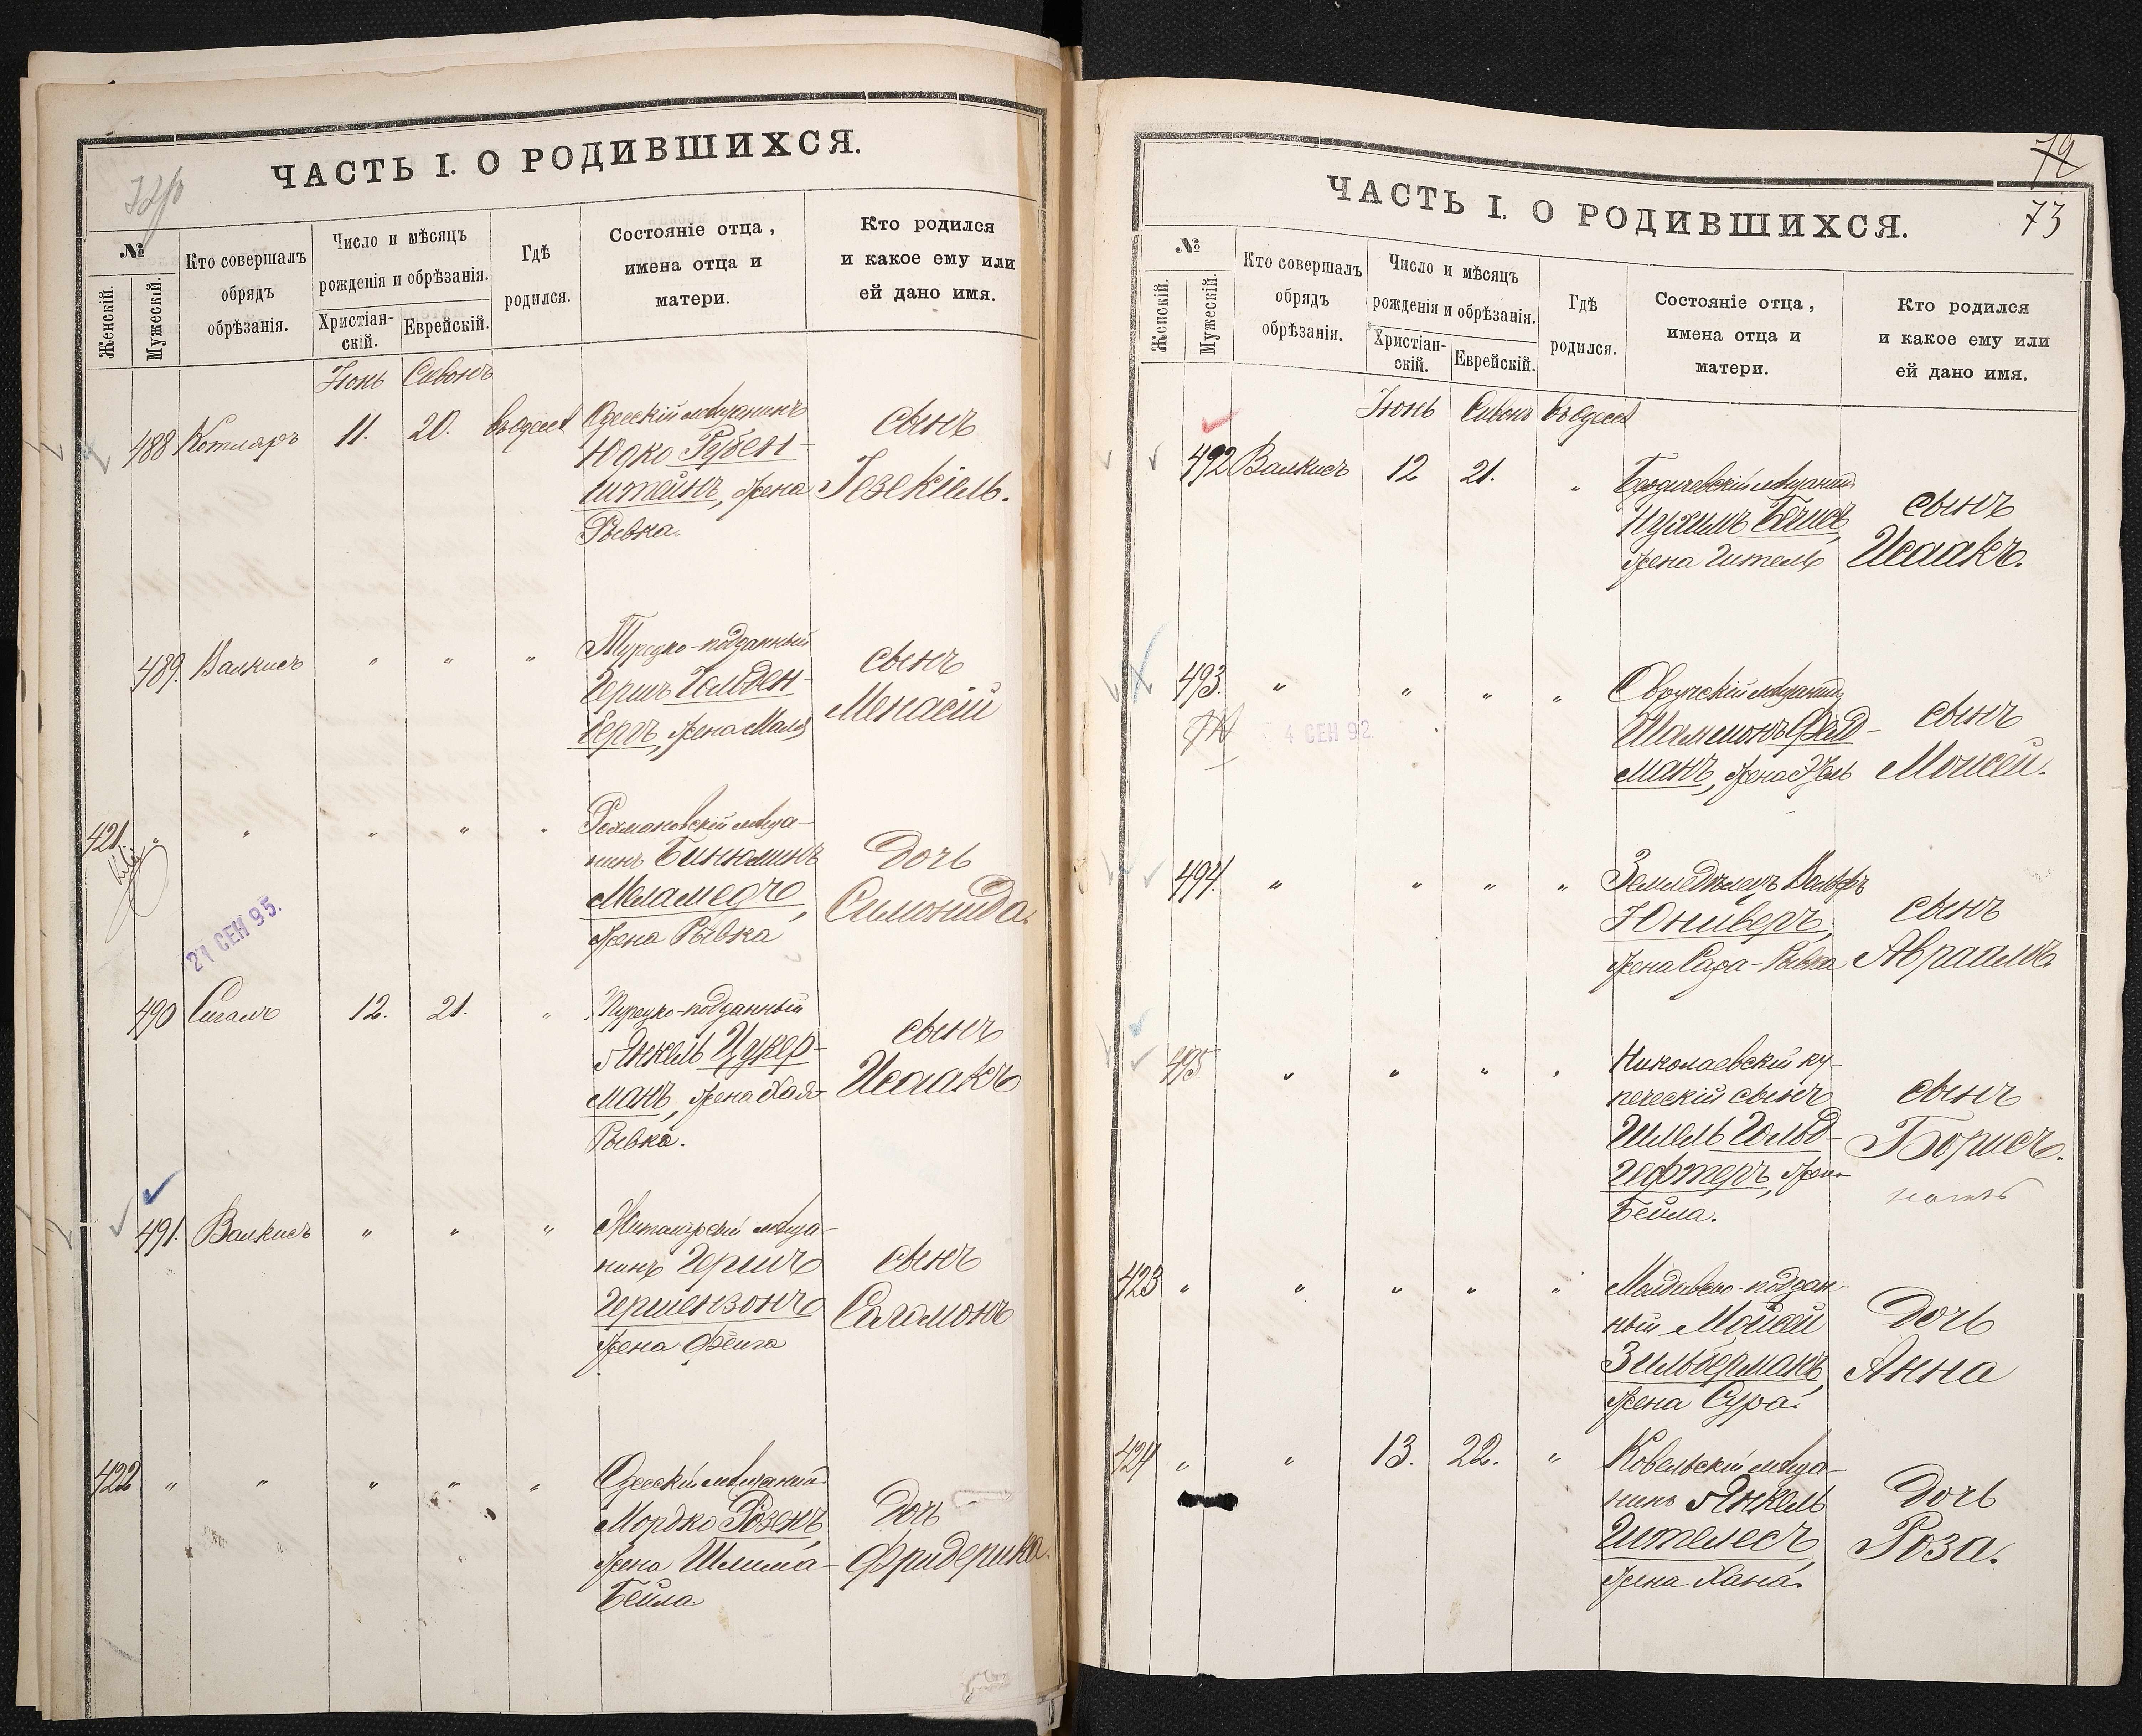 ЧАСТЬ I. О РОДИВШИХСЯ.
№
Женскій.
Мужескій.
Кто совершалъ
обрядъ
обрѣзанія.
Число и мѣсяцъ
рожденія и обрѣзанія.
Христіан-
скій.
Еврейскій.
Гдѣ
родился.
Состояніе отца,
имена отца и
матери.
Кто родился
и какое ему или
ей дано имя.
Іюнь Сивонъ
488 Котляръ 11. 20. въ Одессѣ
Одесскій мѣщанинъ
Юдко Рубен-
штейнъ, жена
Рывка.
сынъ
Іезекіель.
489. Валкисъ " " "
Турецко-подданный
Гершъ Гольден-
бергъ, жена Маля
сынъ
Менасій
421. " " " " "
Рохмановскій мѣща-
нинъ Бинюминъ
Меламедъ,
жена Рывка
дочь
Симонида.
21 СЕН 95.
490 Сигалъ 12. 21. "
Турецко-подданный
Янкель Цукер-
манъ, жена Хая-
Рывка.
сынъ
Исаакъ
491. Валкисъ " " "
Житомірскій мѣща-
нинъ Гершъ
Гершензонъ
жена Фейга
сынъ
Саломонъ
422 " " " " "
Одесскій мѣщанинъ
Мордко Розенъ,
жена Шлима-
Бейла
дочь
Фридерика.
72
73
ЧАСТЬ I. О РОДИВШИХСЯ.
№
Женскій.
Мужескій.
Кто совершалъ
обрядъ
обрѣзанія.
Число и мѣсяцъ
рожденія и обрѣзанія.
Христіан-
скій.
Еврейскій.
Гдѣ
родился.
Состояніе отца,
имена отца и
матери.
Кто родился
и какое ему или
ей дано имя.
Іюнь Сивонъ въ Одессѣ
492 Валкисъ 12 21. "
Бердичевскій мѣщанин.
Нухимъ
жена Ител
сынъ
Исаакъ.
493. " " " "
4 СЕН 92.
Овручскій мѣщанин
Шамшонъ Фельд-
манъ, жена
сынъ
Моисей.
494. " " " "
Земледѣлецъ Вольфъ
Юниверъ,
жена Сара-Рывка
сынъ
Авраамъ.
495 " " " "
Николаевскій ку-
печескій сынъ
Шлель Гольд-
гефтеръ, жена
Бейла.
сынъ
Борисъ.
423 " " " " "
Молдавско-поддан-
ный Мойсей
Зильберманъ,
жена Сура.
дочь
Анна
424 " " 13. 22. "
Ковельскій мѣща-
нинъ Янкель
Ителесъ,
жена Хана.
дочь
Роза.